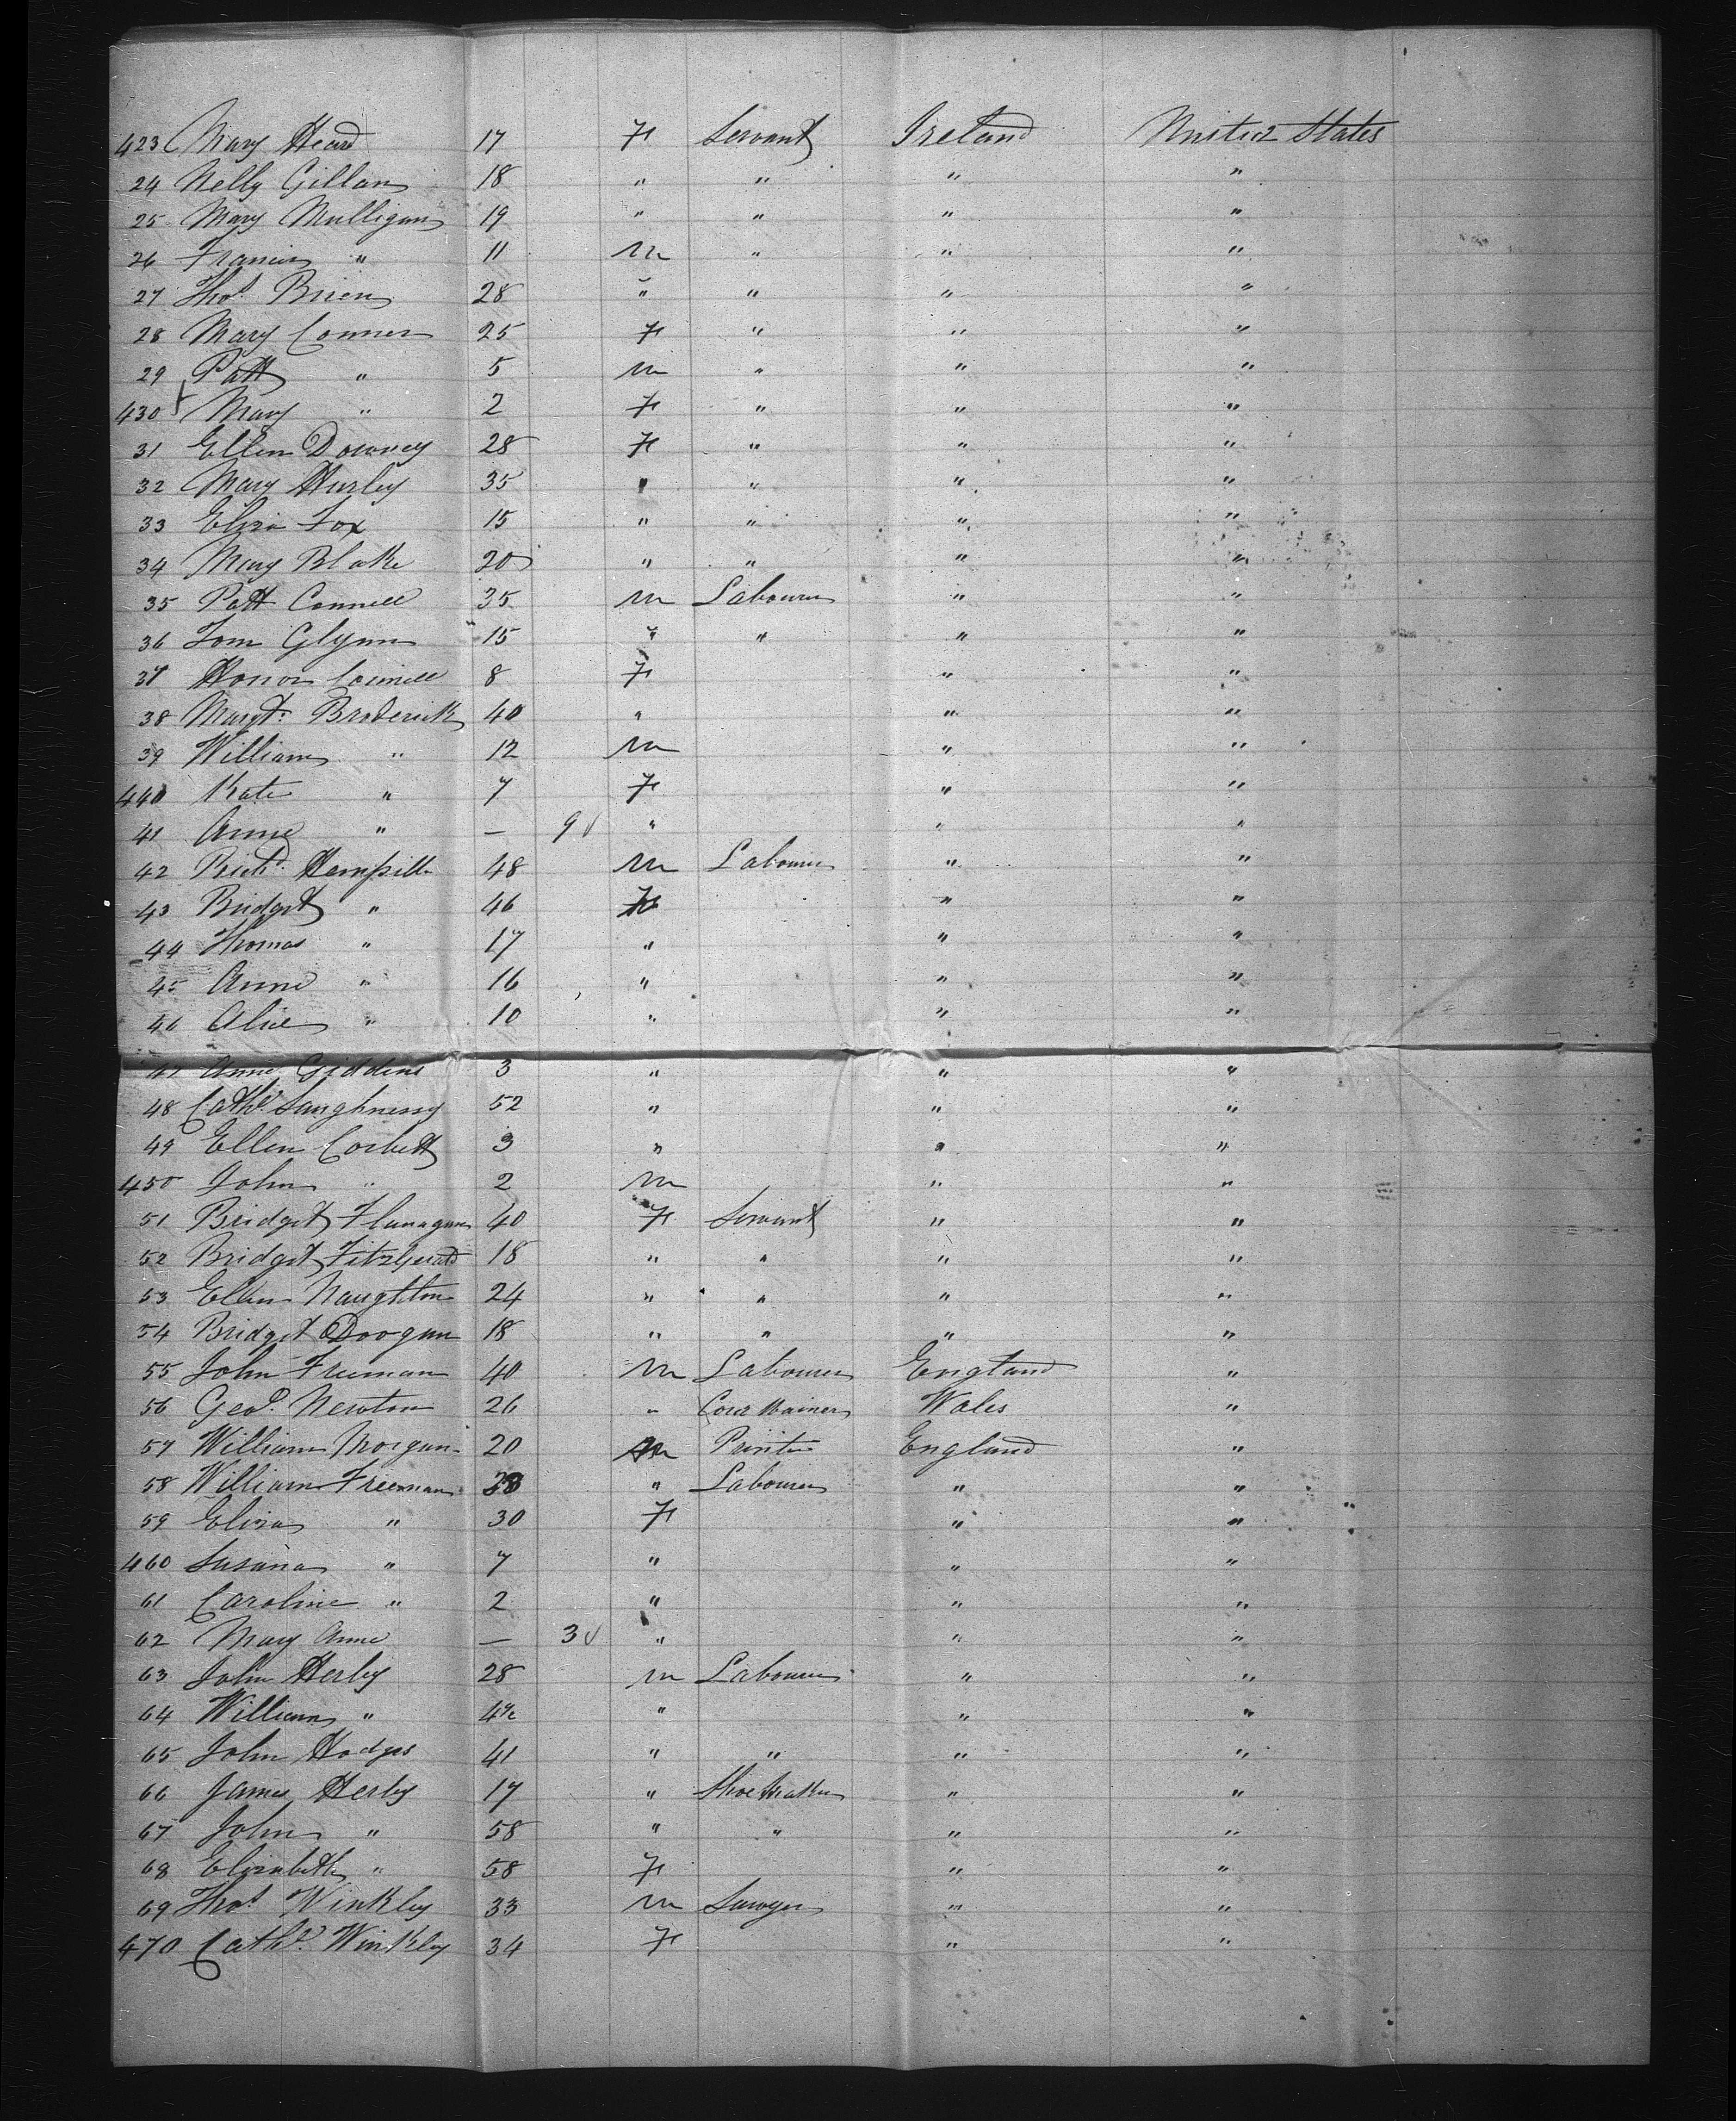 423 Mary Heard 17 F Servant Ireland United States
24 Nelly Gillan 18 " " " "
25 Mary Mulligan 19 " " " "
26 Francis " 11 M " " "
27 Thos. Brien 28 " " " "
28 Mary Conner 25 F " " "
29 Patt " 5 M " " "
430 Mary " 2 F " " "
31 Ellen Downey 28 F " " "
32 Mary Hurley 35 " " " "
33 Eliza Fox 15 " " " "
34 Mary Blake 20 " " " "
35 Patt Connell 35 M Labourer " "
36 Tom Glynn 15 " " " "
37 Honor Connell 8 F " "
38 Margt. Broderick 40 " " "
39 William " 12 M " "
440 Kate " 7 F " "
41 Anne " — 9 " " "
42 Richd. 48 M Labourer " "
43 Bridget " 46 F " "
44 Thomas " 17 " " "
45 Anne " 16 " " "
46 Alice " 10 " " "
47 Anne Giddens 3 " " "
48 Cathe. Saughnessy 52 " " "
49 Ellen Corbett 3 " " "
450 John " 2 M " "
51 Bridget Flanagan 40 F Servant " "
52 Bridget Fitzgerald 18 " " " "
53 Ellen Naughton 24 " " " "
54 Bridget Doogan 18 " " " "
55 John Freeman 40 M Labourer England "
56 Geo. Newton 26 " Cord Wainer Wales "
57 William Morgan 20 M Printer England "
58 William Freeman " Labourer " "
59 Eliza " 30 F " "
460 Susana " 7 " " "
61 Caroline " 2 " " "
62 Mary Anne — 3 " " "
63 John Herley 28 M Labourer " "
64 William " " " "
65 John Hodges 41 " " " "
66 James Herley 17 " Shoe Maker " "
67 John " 58 " " " "
68 Elizabeth " 58 F " "
69 Thos. Winkley 33 M Sawyer " "
470 Cathe. Winkley 34 F " "